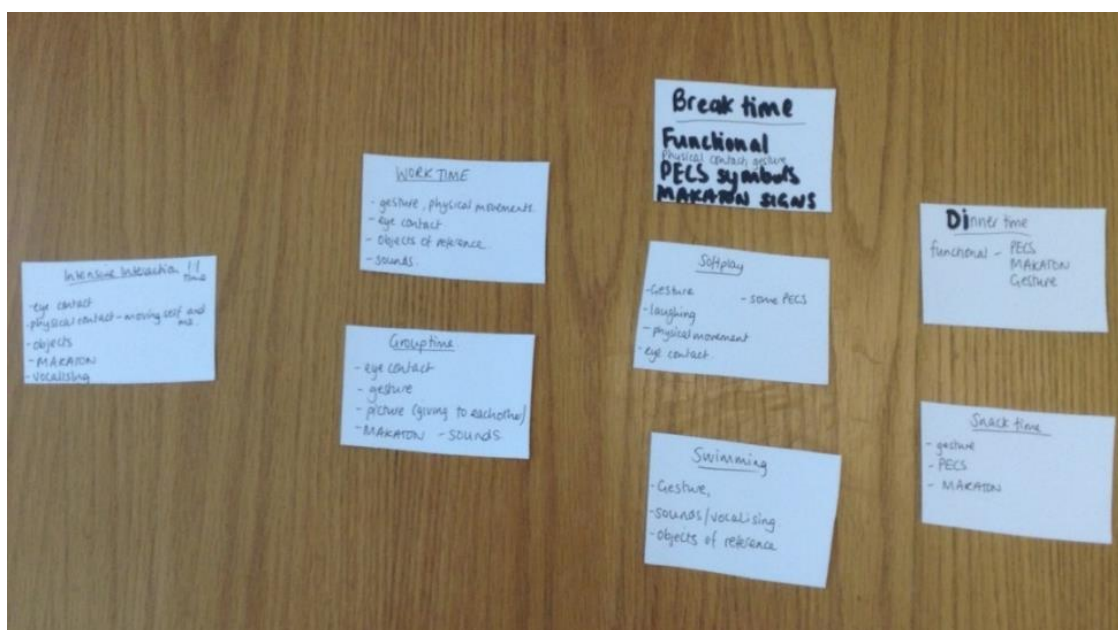 Intensive Interaction !!
time
- eye contact
- physical contact - moving self and
me.
- objects
- MAKATON
- vocalising
WORK TIME
- gesture, physical movements.
- eye contact
- Objects of reference.
- sounds.
Grouptime
- eye contact
- gesture
- picture (giving to eachother)
- MAKATON - sounds.
Break time
Functional
Physical contact, gesture
PECS symbols
MAKATON SIGNS
Softplay
- Gesture - some PECS
- laughing
- physical movement
- eye contact.
Swimming
- Gesture,
- sounds/vocalising
- Objects of reference
Dinner time
functional - PECS
MAKATON
Gesture
Snack time
- gesture
- PECS
- MAKATON